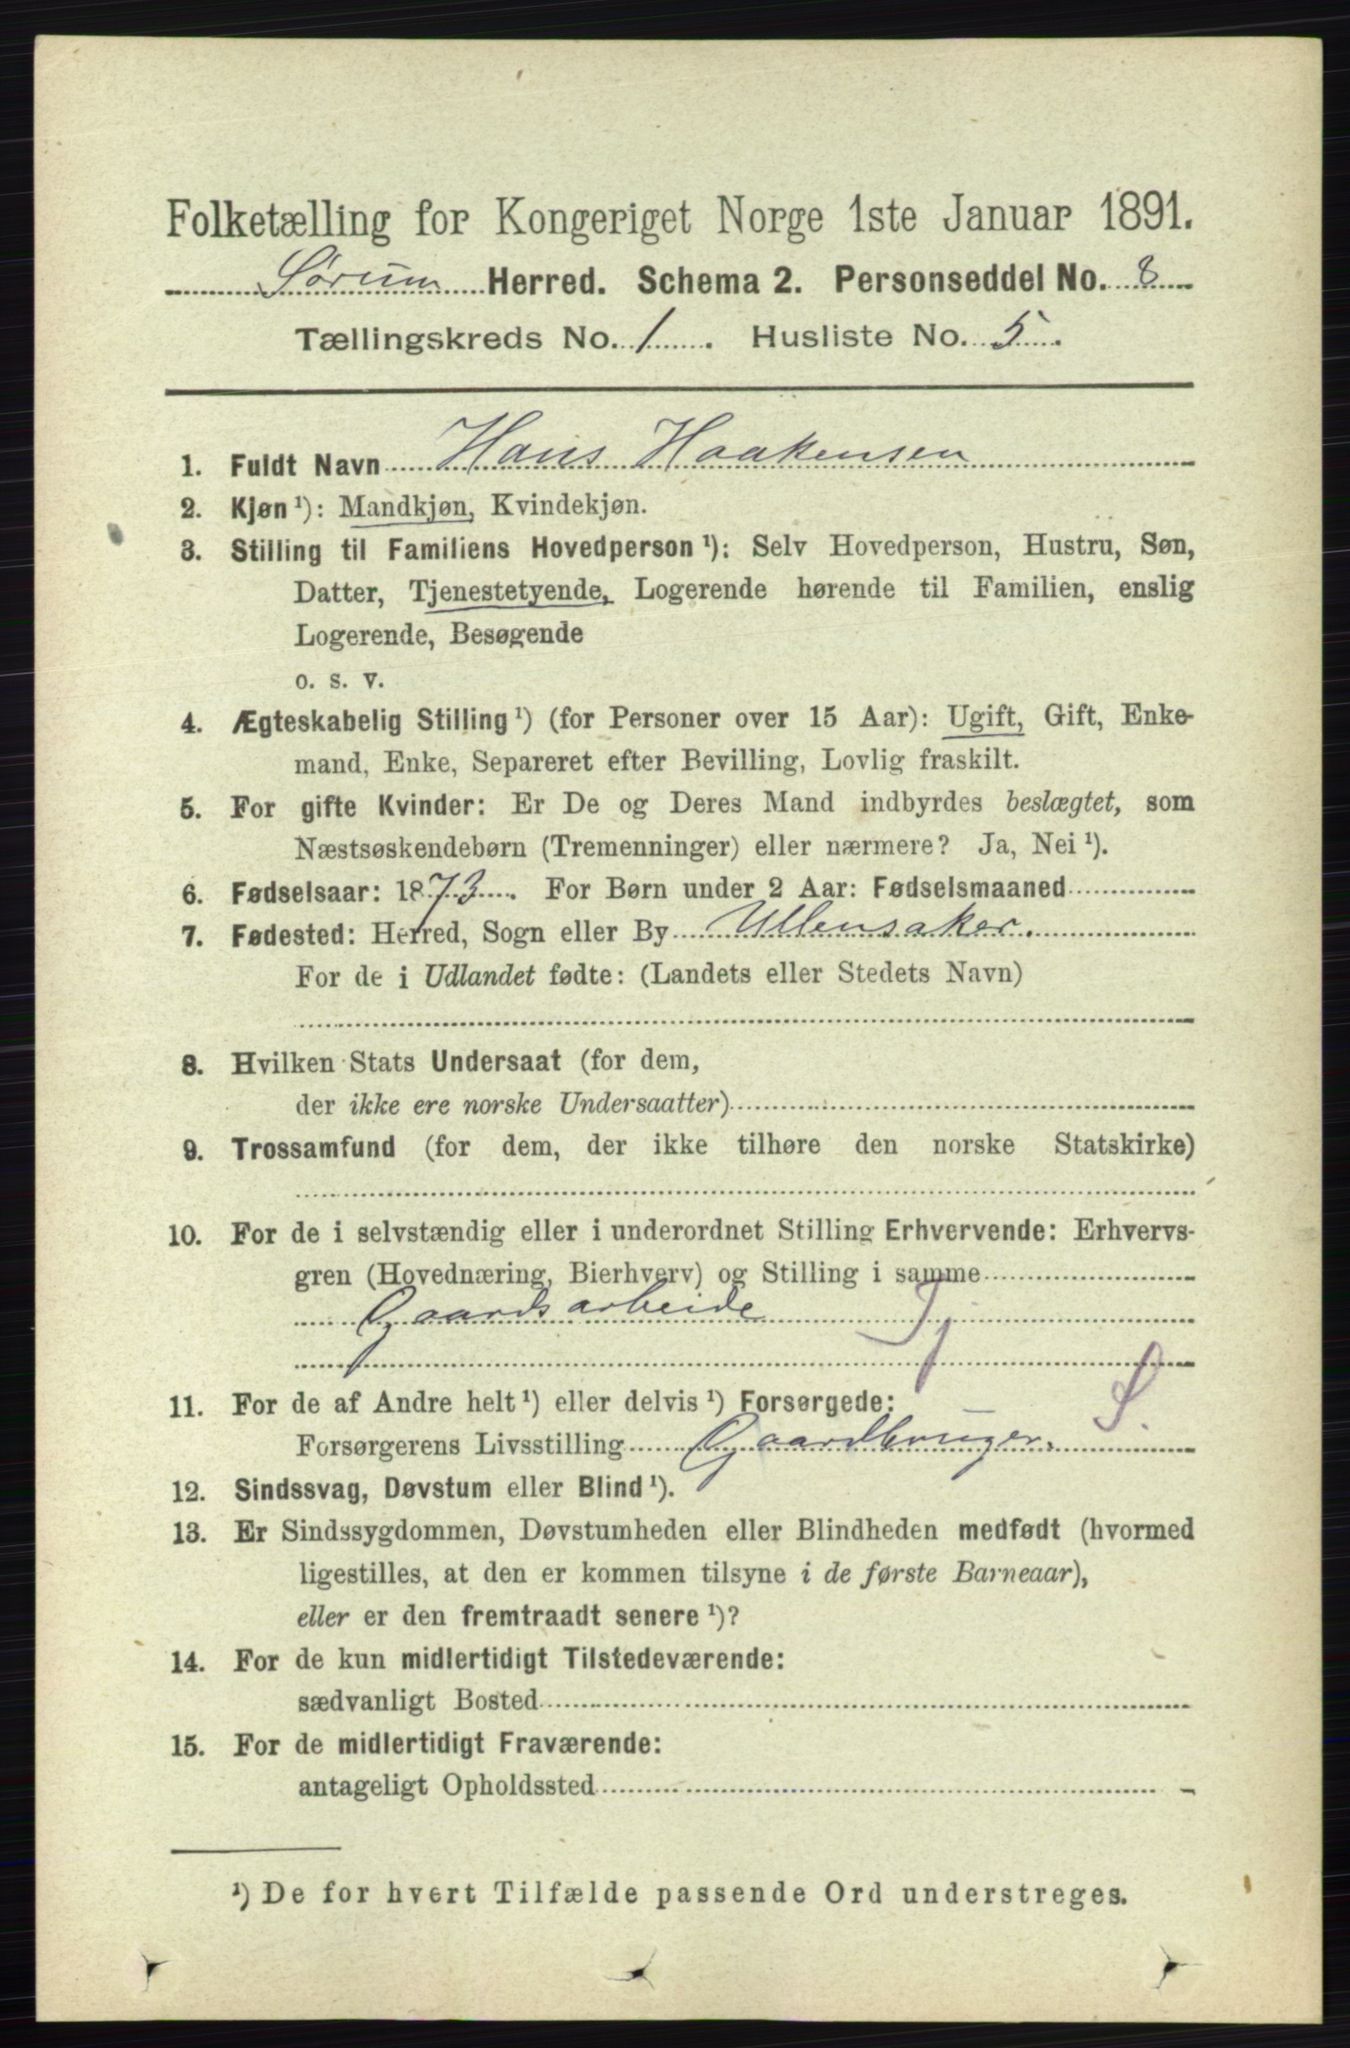 Folketælling for Kongeriget Norge 1ste Januar 1891.
Sørum Herred. Schema 2. Personseddel No. 8
Tællingskreds No. 1. Husliste No. 5.
1. Fuldt Navn Hans Haakensen
2. Kjøn ¹): Mandkjøn, Kvindekjøn.
3. Stilling til Familiens Hovedperson ¹): Selv Hovedperson, Hustru, Søn,
Datter, Tjenestetyende, Logerende hørende til Familien, enslig
Logerende, Besøgende
o. s. v.
4. Ægteskabelig Stilling ¹) (for Personer over 15 Aar): Ugift, Gift, Enke-
mand, Enke, Separeret efter Bevilling, Lovlig fraskilt.
5. For gifte Kvinder: Er De og Deres Mand indbyrdes beslægtet, som
Næstsøskendebørn (Tremenninger) eller nærmere? Ja, Nei ¹).
6. Fødselsaar: 1873. For Børn under 2 Aar: Fødselsmaaned
7. Fødested: Herred, Sogn eller By Ullensaker.
For de i Udlandet fødte: (Landets eller Stedets Navn)
8. Hvilken Stats Undersaat (for dem,
der ikke ere norske Undersaatter)
9. Trossamfund (for dem, der ikke tilhøre den norske Statskirke)
10. For de i selvstændig eller i underordnet Stilling Erhvervende: Erhvervs-
gren (Hovednæring, Bierhverv) og Stilling i samme
Gaardsarbeide Tj
11. For de af Andre helt ¹) eller delvis ¹) Forsørgede: S.
Forsørgerens Livsstilling Gaardbruger.
12. Sindssvag, Døvstum eller Blind ¹).
13. Er Sindssygdommen, Døvstumheden eller Blindheden medfødt (hvormed
ligestilles, at den er kommen tilsyne i de første Barneaar),
eller er den fremtraadt senere ¹)?
14. For de kun midlertidigt Tilstedeværende:
sædvanligt Bosted
15. For de midlertidigt Fraværende:
antageligt Opholdssted
¹) De for hvert Tilfælde passende Ord understreges.